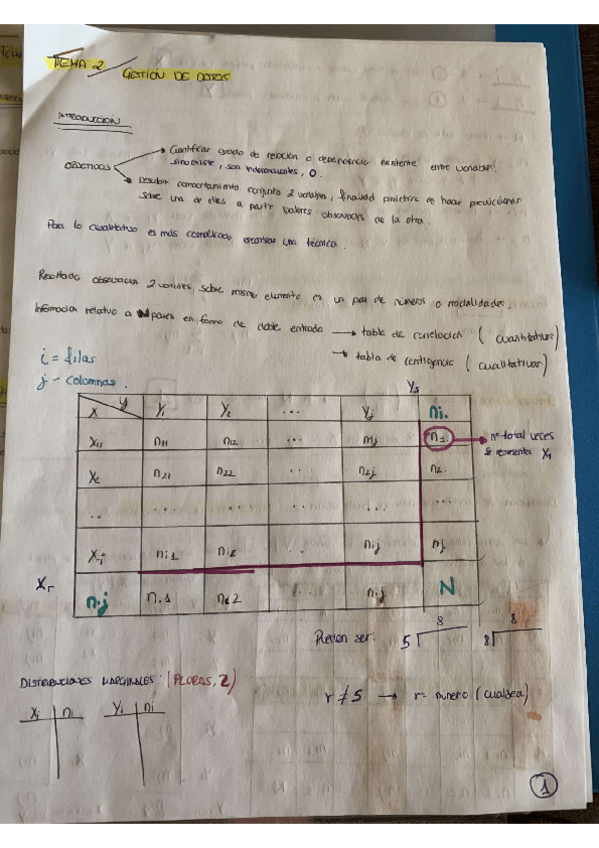 TEMA 2
GESTIÓN DE DATOS
INTRODUCCIÓN
OBJETIVOS → Cuantificar grado de relación o dependencia existente entre variables.
si no existe, son independientes, 0.
→ Describir comportamiento conjunto 2 variables, finalidad predictiva de hacer predicciones
sobre una de ellas a partir valores observados de la otra.
Para lo cualitativo es más complicado encontrar una técnica.
Resultado observación 2 variables sobre mismo elemento es un par de números o modalidades.
Información relativo a N pares en forma de doble entrada → tabla de correlación (cuantitativas)
→ tabla de contigencia (cualitativas)
i = filas
j - columnas.
Ys
X Y Y1 Y2 ... Yj ni.
X1 n11 n12 ... n1. → nº total veces
se representa X1
X2 n21 n22 ... n2j n2.
... ... ... ... ...
Xi ni1 ni2 ... nij
Xr
n.j n.1 ... N
Pueden ser: 5 8 8 8
DISTRIBUCIONES MARGINALES: (2)
r ≠ s → r = número (cualsea)
Xi ni Yi ni
1